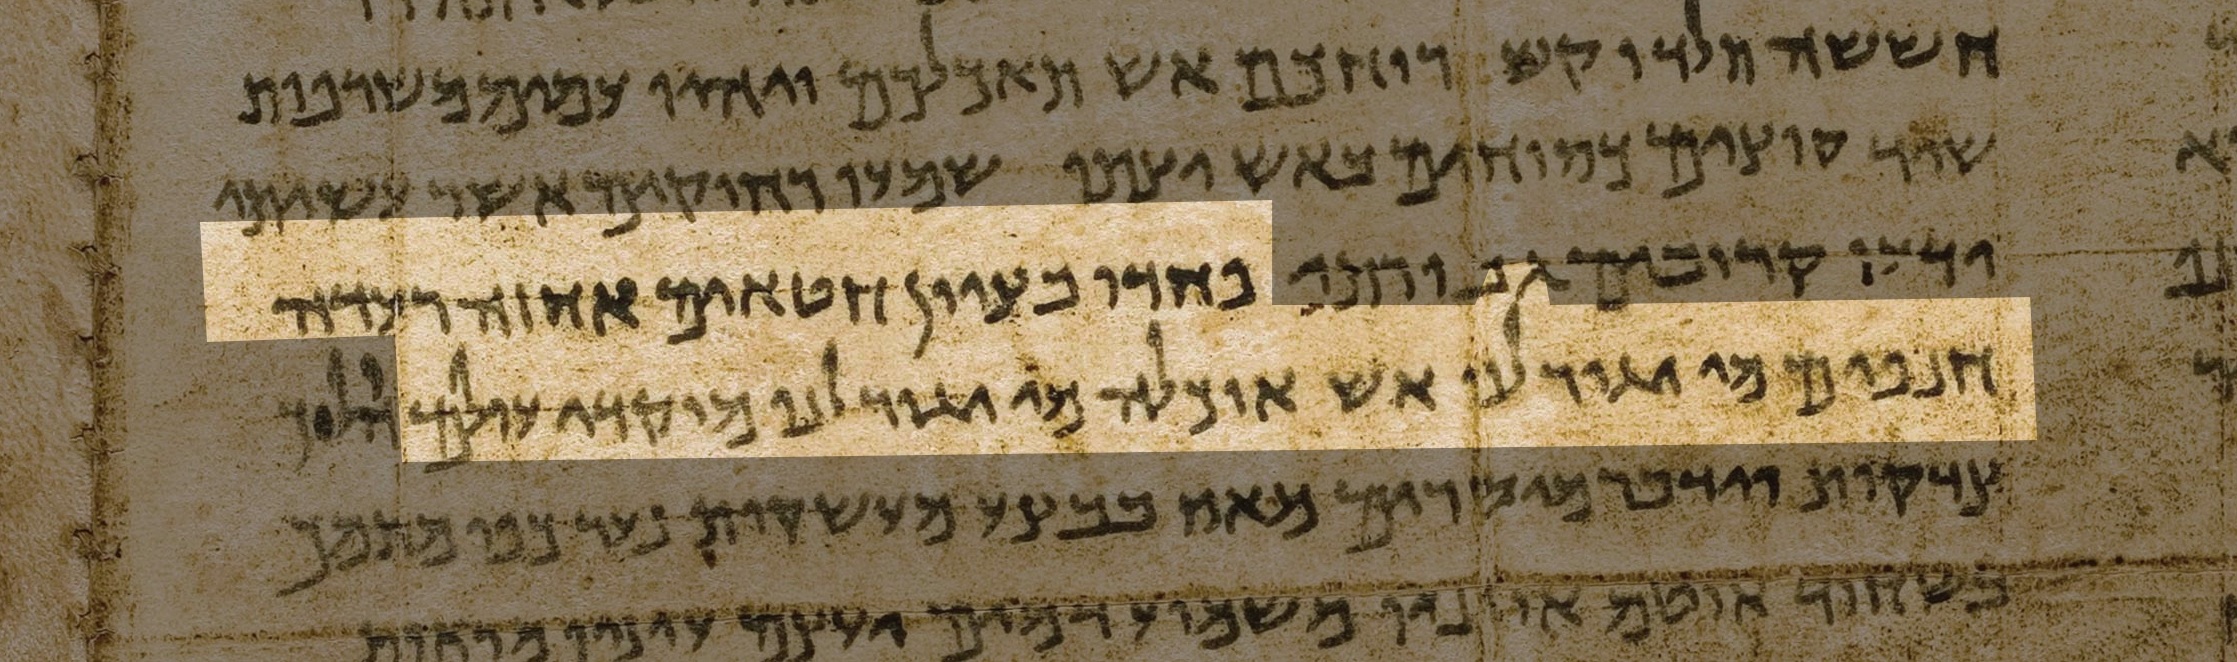 חששה תלדו קש רוחכם אש תאכלכם והיו עמים משרפות
שיד קוצים כסוחים באש יצתו שמעו רחוקים אשר עשיתי
ידעו קרובים גבורתי פחדו בציון חטאים אחזה רעדה
חנפים מי יגור לנו אש אוכלה מי יגור לנו מוקדי עולם הולך
צדקות ודבר מישרים מאס בבצע מעשקות נער כפיו מתמך
בשוחד אוטם אוזניו משמוע דמים ועצם עיניו מראות